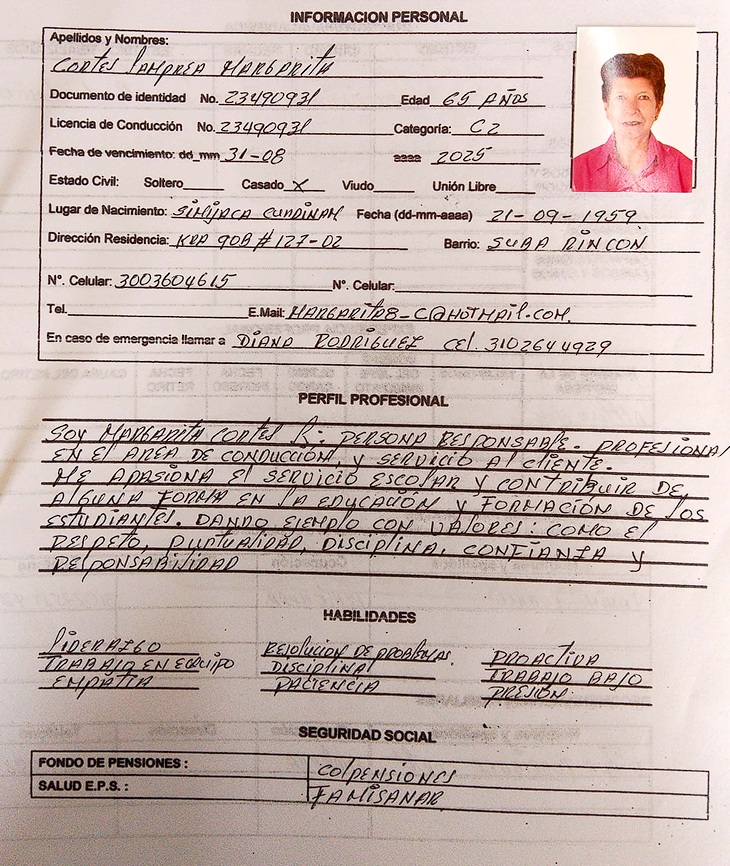 INFORMACION PERSONAL
Apellidos y Nombres:
CORTES LAMPREA MARGARITA
Documento de identidad No. 23490931 Edad 65 AÑOS
Licencia de Conducción No. 23490931 Categoría: C2
Fecha de vencimiento: dd_mm 31-08 aaaa 2025
Estado Civil: Soltero____ Casado X Viudo____ Unión Libre____
Lugar de Nacimiento: SIMIJACA CUNDINAM Fecha (dd-mm-aaaa) 21-09-1959
Dirección Residencia: KRA 90B # 127-02 Barrio: SUBA RINCON
N°. Celular: 3003604615 N°. Celular:
Tel. E.Mail: MARGARITA8_C@HOTMAIL.COM.
En caso de emergencia llamar a DIANA RODRIGUEZ CEL. 3102644929
PERFIL PROFESIONAL
SOY MARGARITA CORTES L: PERSONA RESPONSABLE. PROFESIONAL
EN EL AREA DE CONDUCCIÓN, Y SERVICIO AL CLIENTE.
ME APASIONA EL SERVICIO ESCOLAR Y CONTRIBUIR DE
ALGUNA FORMA EN LA EDUCACIÓN Y FORMACIÓN DE LOS
ESTUDIANTES. DANDO EJEMPLO CON VALORES: COMO EL
RESPETO, PUNTUALIDAD, DISCIPLINA, CONFIANZA Y
RESPONSABILIDAD
HABILIDADES
LIDERAZGO RESOLUCION DE PROBLEMAS. PROACTIVA
TRABAJO EN EQUIPO DISCIPLINA TRABAJO BAJO
EMPATIA PACIENCIA PRESIÓN
SEGURIDAD SOCIAL
FONDO DE PENSIONES : COLPENSIONES
SALUD E.P.S. : FAMISANAR